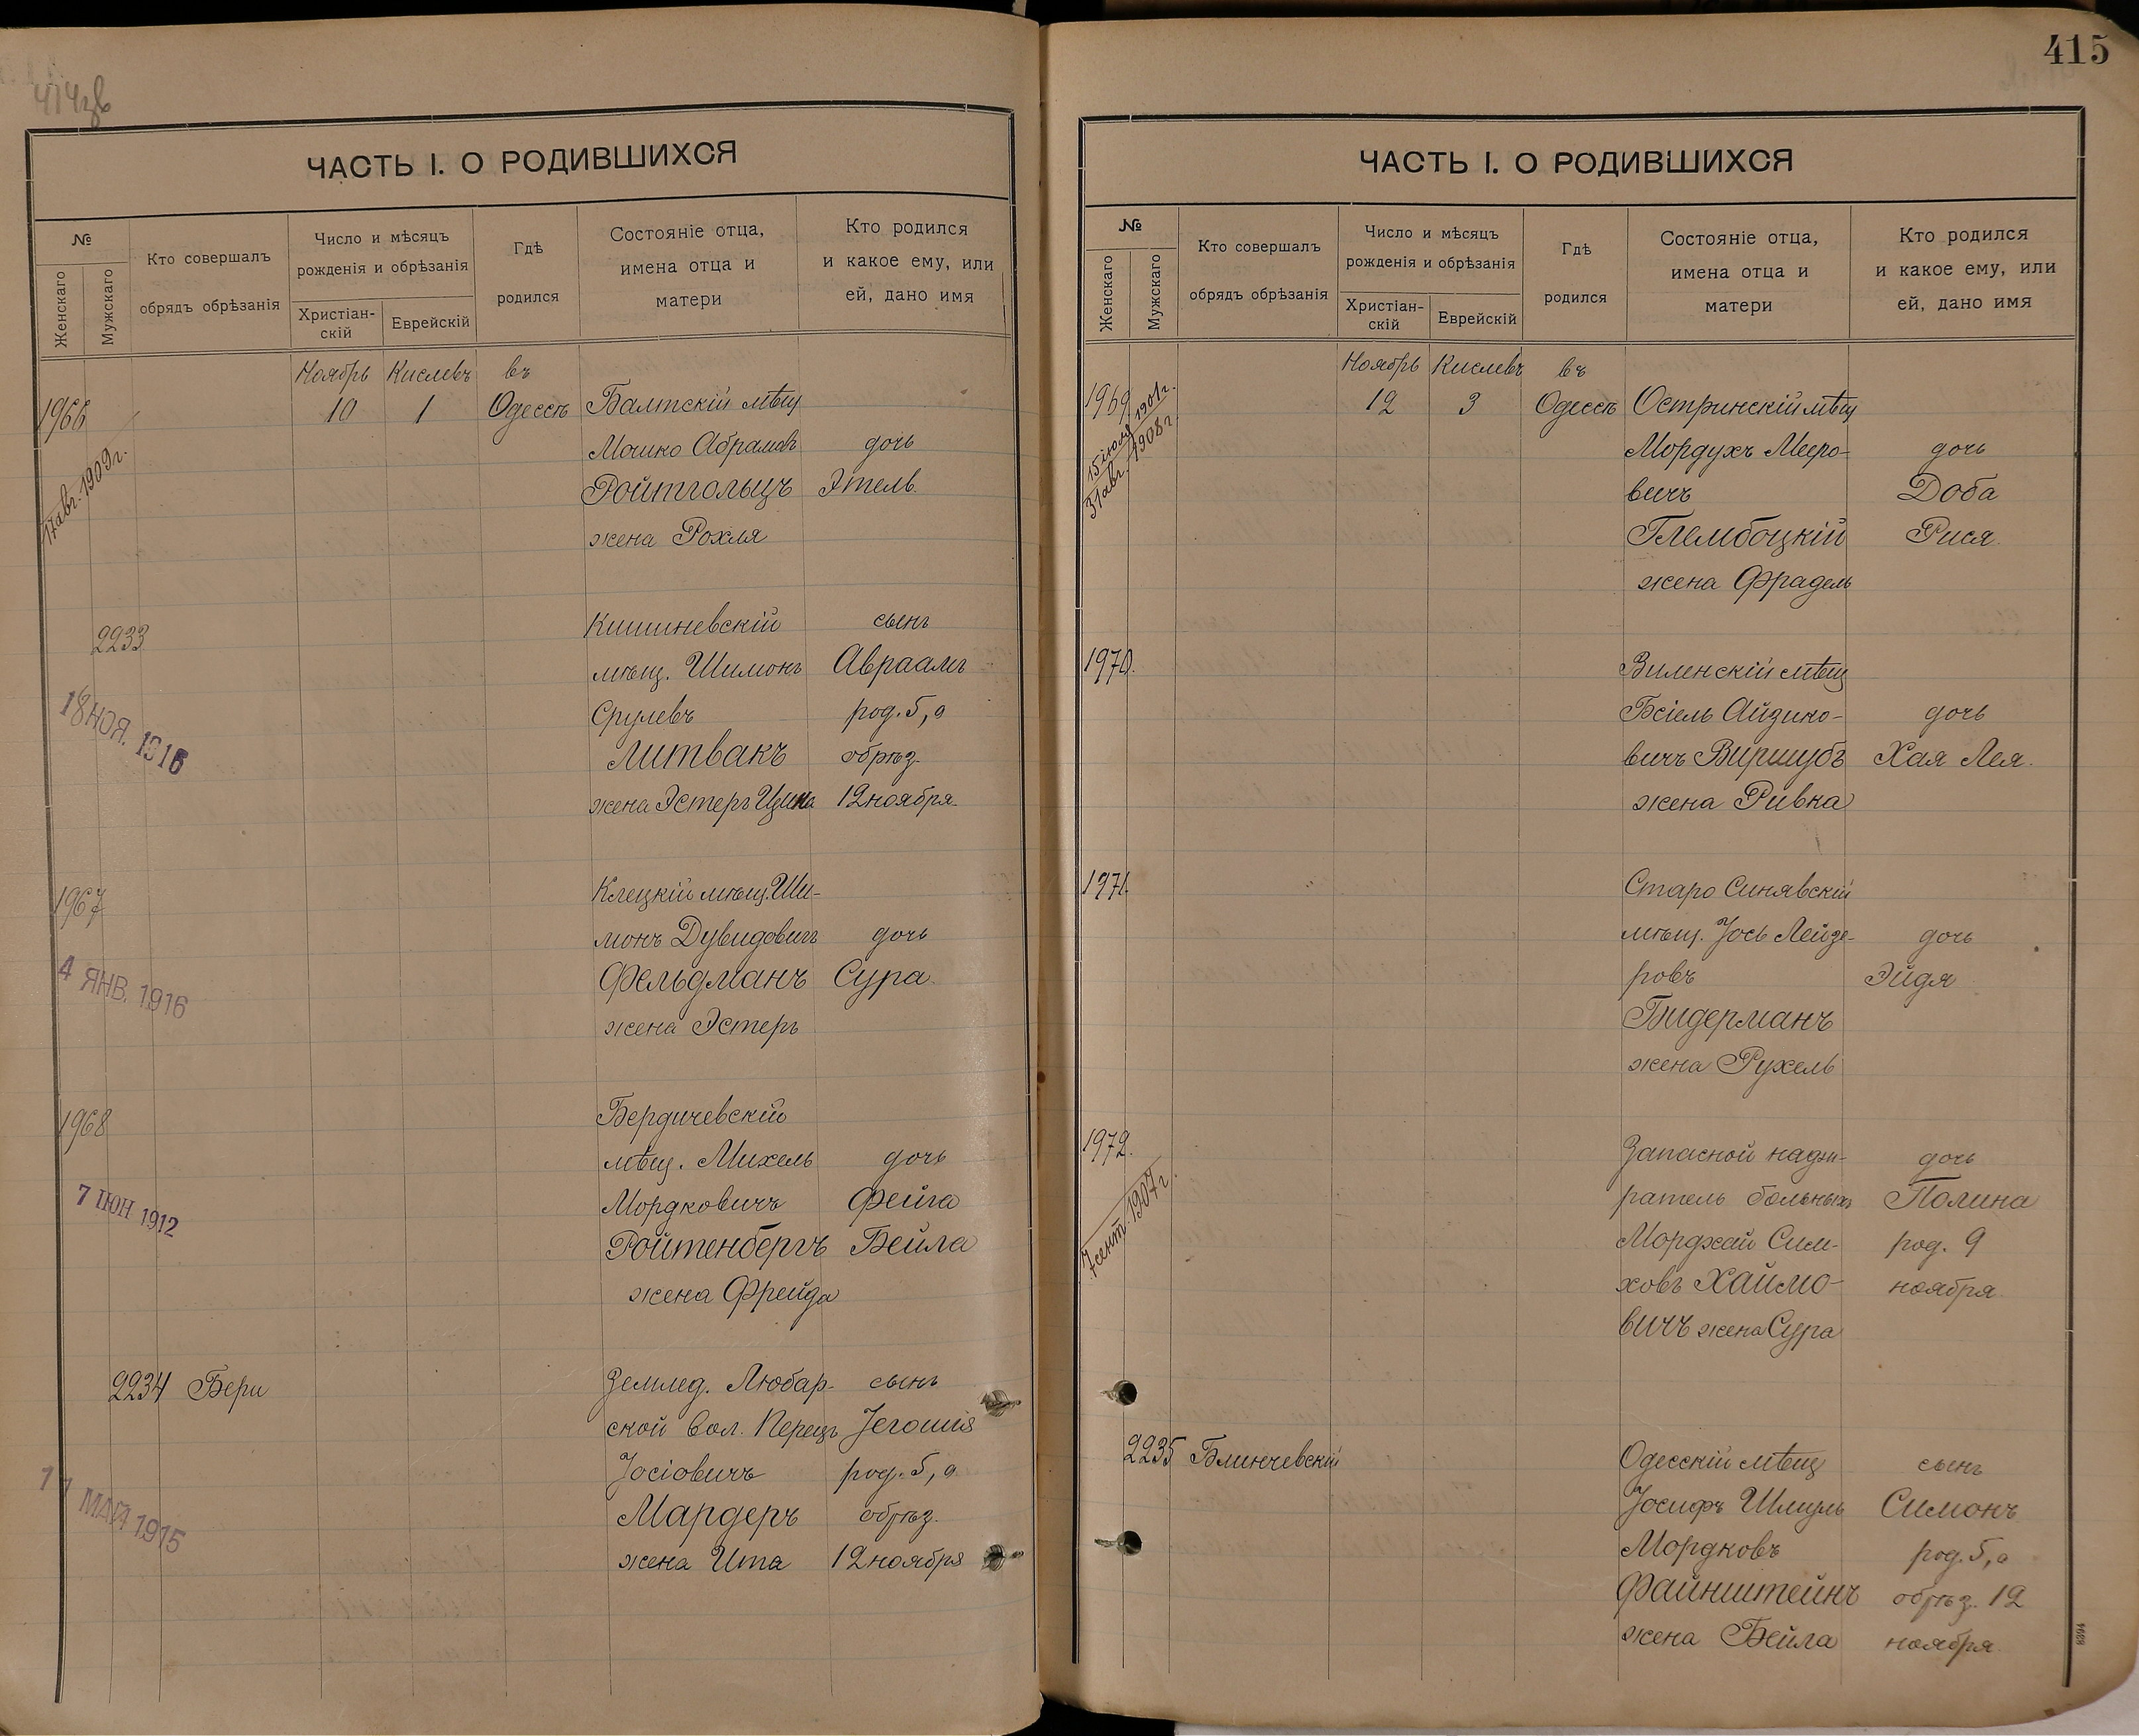 414зв
ЧАСТЬ I. О РОДИВШИХСЯ
№
Женскаго
Мужскаго
Кто совершалъ
обрядъ обрѣзанія
Число и мѣсяцъ
рожденія и обрѣзанія
Христіан-
скій
Еврейскій
Гдѣ
родился
Состояніе отца,
имена отца и
матери
Кто родился
и какое ему, или
ей, дано имя
Ноябрь Кислевъ въ
1966 10 1 Одессѣ Балтскій мѣщ
Мошко Абрамовъ дочь
17 авг. 1909 г. Ройтгольцъ Этель.
жена Рохля
2233 Кишиневскій сынъ
мѣщ. Шимонъ Авраамъ
18 НОЯ. 1916 Срулевъ род. 5, а
Литвакъ обрѣз.
жена Эстеръ Цина 12 ноября.
1967 Клецкій мѣщ. Ши-
монъ Дувидовичъ дочь
4 ЯНВ. 1916 Фельдманъ Сура.
жена Эстеръ
1968 Бердичевскій
мѣщ. Михель дочь
7 ІЮН 1912 Мордковичъ Фейга
Ройтенбергъ Бейла
жена Фрейда
2234 Бери Землед. Любар- сынъ
ской вол. Перецъ Іегошія
Іосіовичъ род. 5, а
11 МАЙ 1915 Мардеръ обрѣз.
жена Ита 12 ноября
415
ЧАСТЬ I. О РОДИВШИХСЯ
№
Женскаго
Мужскаго
Кто совершалъ
обрядъ обрѣзанія
Число и мѣсяцъ
рожденія и обрѣзанія
Христіан-
скій
Еврейскій
Гдѣ
родился
Состояніе отца,
имена отца и
матери
Кто родился
и какое ему, или
ей, дано имя
Ноябрь Кислевъ въ
1969 12 3 Одессѣ Остринскій мѣщ
15 іюля 1901 г. Мордухъ Мееро- дочь
31 авг. 1908 г. вичъ Доба
Глембоцкій Рися.
жена Фрадель
1970. Виленскій мѣщ
Бсіель Айзико- дочь
вичъ Виршубъ Хая Лея.
жена Ривка
1971. Старо Синявскій
мѣщ. Іось Лейзе- дочь
ровъ Эйдя
Бидерманъ
жена Рухель
1972. Запасной надзи- дочь
ратель больныхъ Полина
7 сент. 1907 г. Мордхай Сим- род. 9
ховъ Хаймо- ноября.
вичъ жена Сура
2235 Блинчевскій Одесскій мѣщ сынъ
Іосифъ Шмуль Симонъ
Мордковъ род. 5, а
Файнштейнъ обрѣз. 12
жена Бейла ноября.
8394